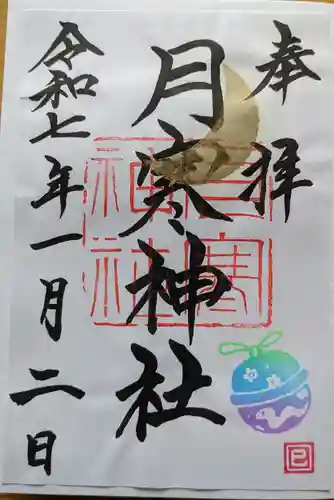 奉拝
月寒神社
月寒神社
令和七年一月二日
巳